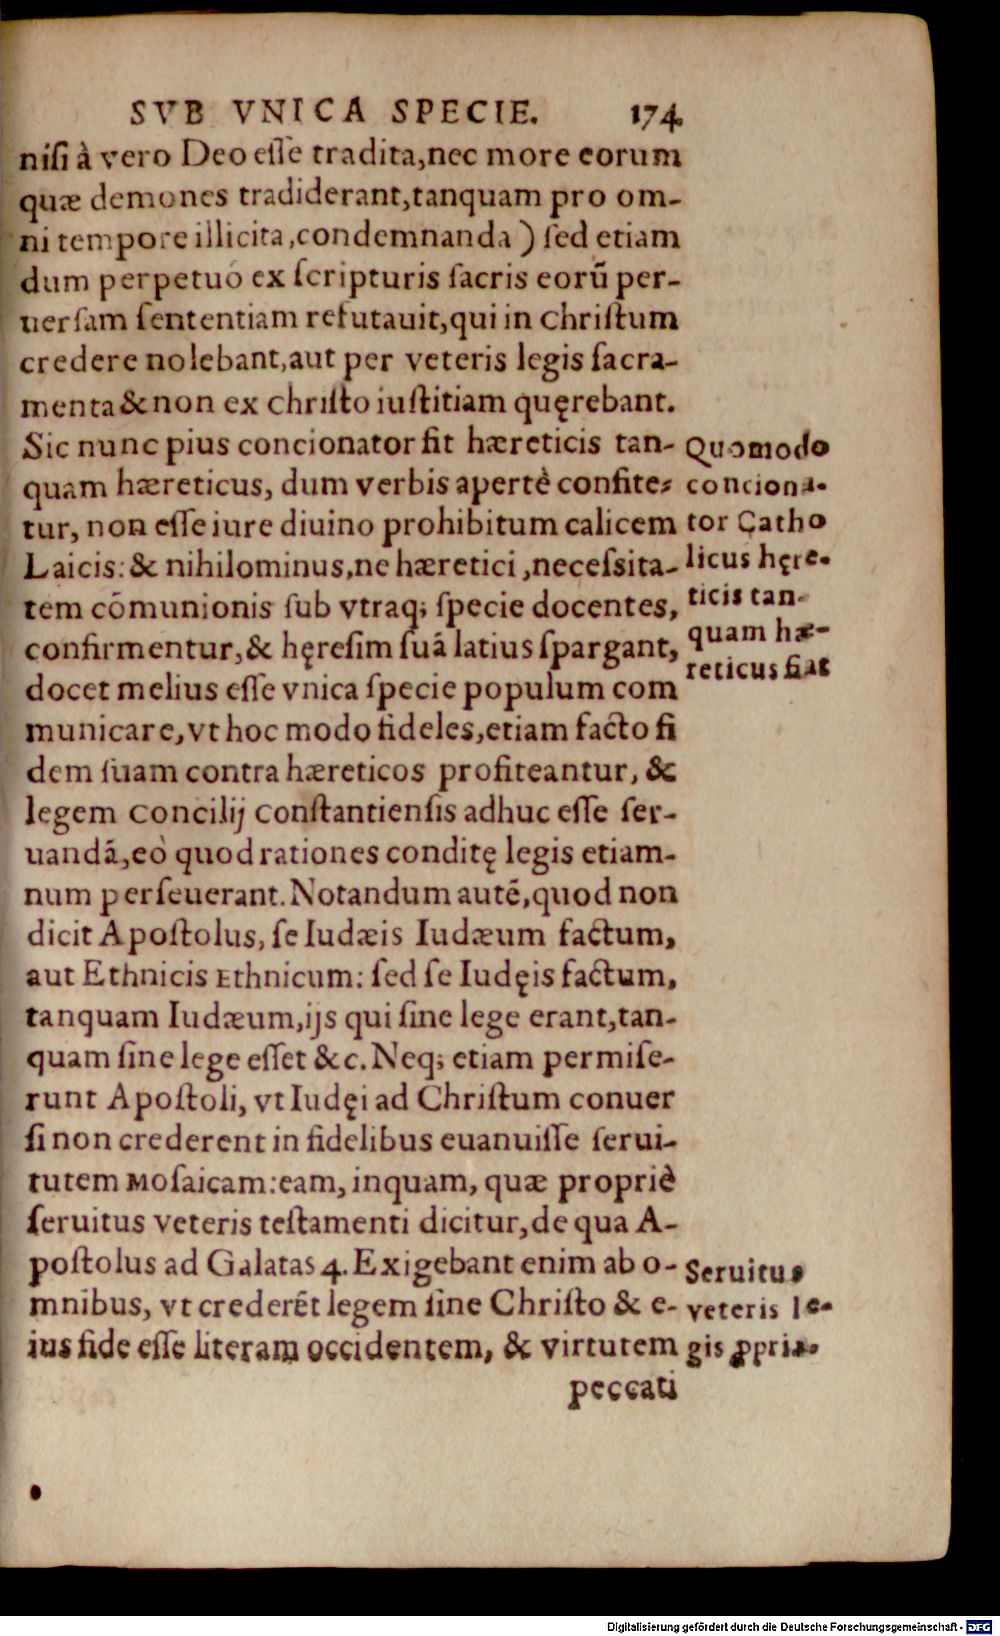 SVB VNICA SPECIE. 174.
niſi à vero Deo eſſe tradita, nec more eorum
quæ demones tradiderant, tanquam pro om-
ni tempore illicita, condemnanda) ſed etiam
dum perpetuò ex ſcripturis ſacris eorũ per-
uerſam ſententiam refutauit, qui in Chriſtum
credere nolebant, aut per veteris legis ſacra-
menta & non ex chriſto iuſtitiam quęrebant.
Sic nunc pius concionator fit hæreticis tan-
quam hæreticus, dum verbis apertè confite-
tur, non eſſe iure diuino prohibitum calicem
Laicis: & nihilominus, ne hæretici, neceſsita-
tem cõmunionis ſub vtraq; ſpecie docentes,
confirmentur, & hęreſim ſuã latius ſpargant,
docet melius eſſe vnica ſpecie populum com
municare, vt hoc modo fideles, etiam facto fi
dem ſuam contra hæreticos profiteantur, &
legem Concilij Conſtantienſis adhuc eſſe ſer-
uandã, eò quod rationes conditę legis etiam-
num perſeuerant. Notandum autẽ, quod non
dicit Apoſtolus, ſe Iudæis Iudæum factum,
aut Ethnicis Ethnicum: ſed ſe Iudęis factum,
tanquam Iudæum, ijs qui ſine lege erant, tan-
quam ſine lege eſſet &c. Neq; etiam permiſe-
runt Apoſtoli, vt Iudęi ad Chriſtum conuer
ſi non crederent in fidelibus euanuiſſe ſerui-
tutem Moſaicam: eam, inquam, quæ propriè
ſeruitus veteris teſtamenti dicitur, de qua A-
poſtolus ad Galatas 4. Exigebant enim ab o-
mnibus, vt crederẽt legem ſine Chriſto & e-
ius fide eſſe literam occidentem, & virtutem
peccati
Quomodo
conciona-
tor Catho
licus hęre-
ticis tan-
quam hæ-
reticus fiat
Seruitus
veteris le-
gis ꝓpria.
Digitalisierung gefördert durch die Deutsche Forschungsgemeinschaft - DFG